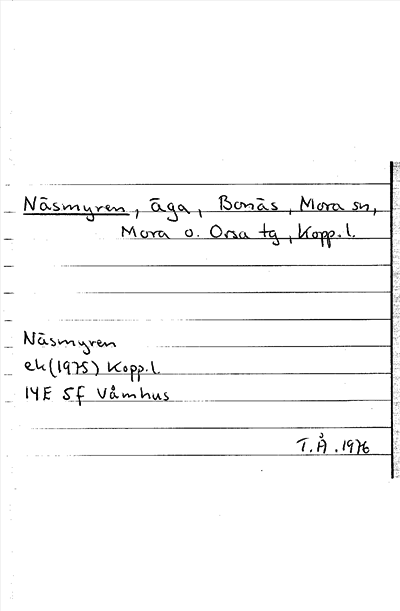 Näsmyren, äga, Bonäs, Mora sn,
Mora o. Orsa tg, Kopp.l.
Näsmyren
ek (1975) Kopp.l.
14E 5f Våmhus
T.Å. 1976